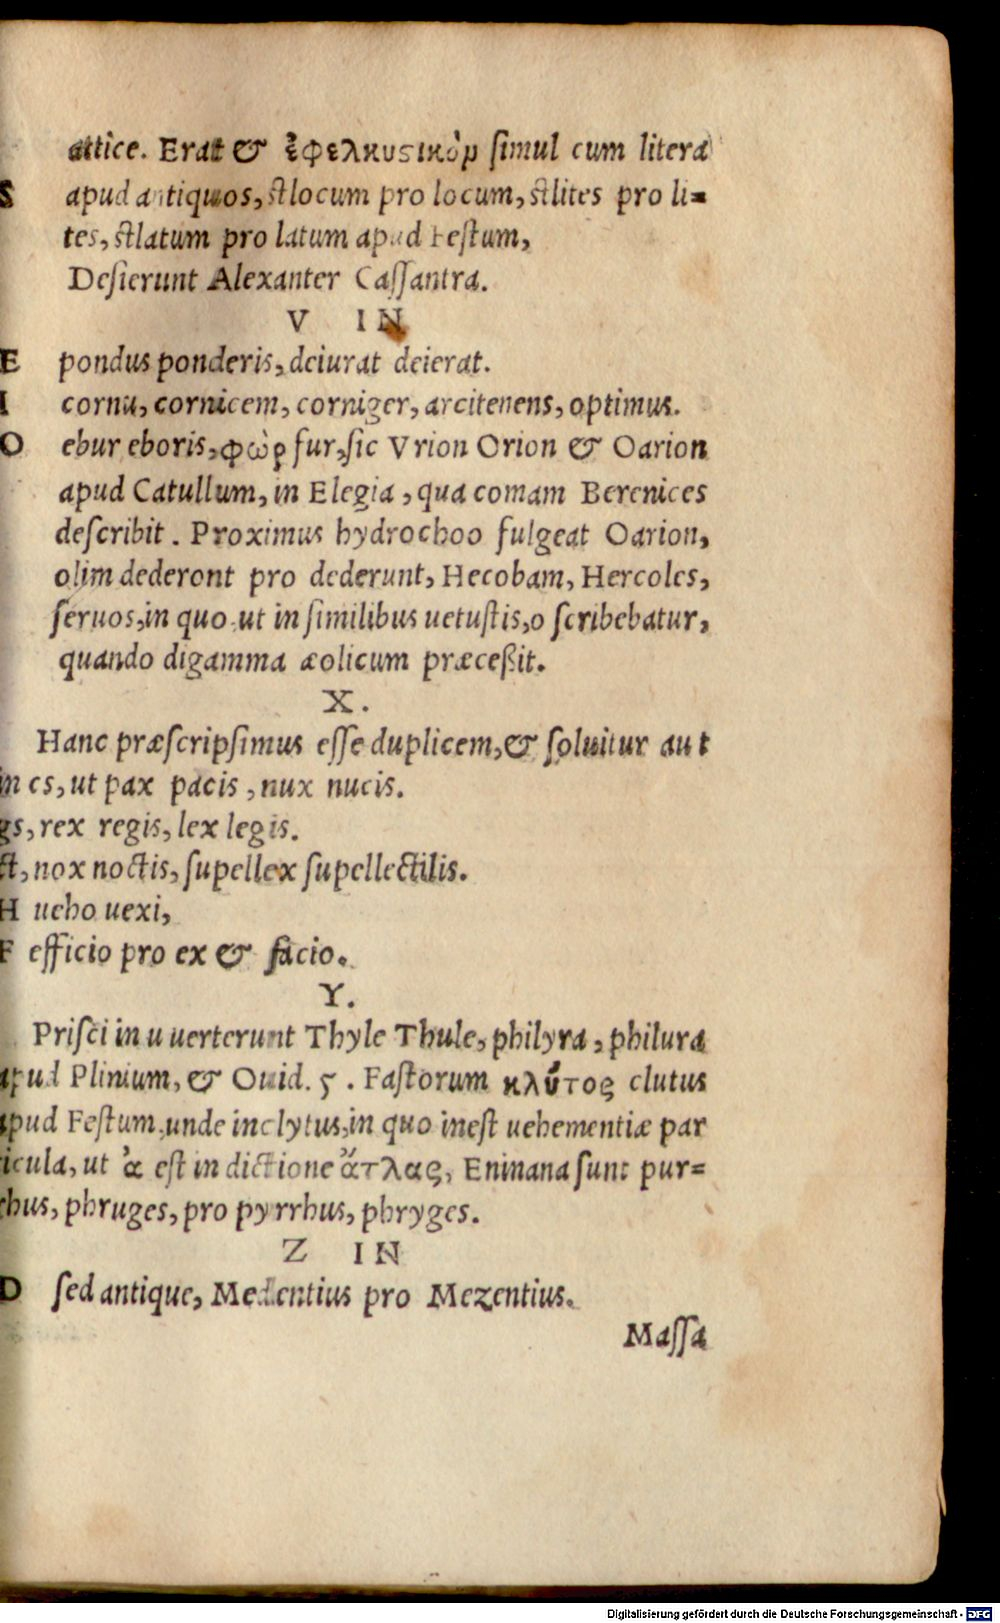 attice. Erat & ἐφελκυςικὸν simul cum litera
S apud antiquos, stlocum pro locum, stlites pro li=
tes, stlatum pro latum apud Festum,
Desierunt Alexanter Cassantra.
V IN
E pondus ponderis, deiurat deierat.
I cornu, cornicem, corniger, arcitenens, optimus.
O ebur eboris, φὼρ fur, sic Vrion Orion & Oarion
apud Catullum, in Elegia, qua comam Berenices
describit. Proximus hydrochoo fulgeat Oarion,
olim dederont pro dederunt, Hecobam, Hercoles,
seruos, in quo ut in similibus uetustis, o scribebatur,
quando digamma æolicum præceßit.
X.
Hanc præscripsimus esse duplicem, & soluitur aut
in cs, ut pax pacis, nux nucis.
gs, rex regis, lex legis.
ct, nox noctis, supellex supellectilis.
H ueho uexi,
F efficio pro ex & facio.
Y.
Prisci in u uerterunt Thyle Thule, philyra, philura
apud Plinium, & Ouid. 5. Fastorum κλῦτος clutus
apud Festum, unde inclytus, in quo inest uehementiæ par
ticula, ut ἀ est in dictione ἄτλας, Eninana sunt pur=
rhus, phruges, pro pyrrhus, phryges.
Z IN
D sed antique, Medentius pro Mezentius.
Massa
Digitalisierung gefördert durch die Deutsche Forschungsgemeinschaft - DFG